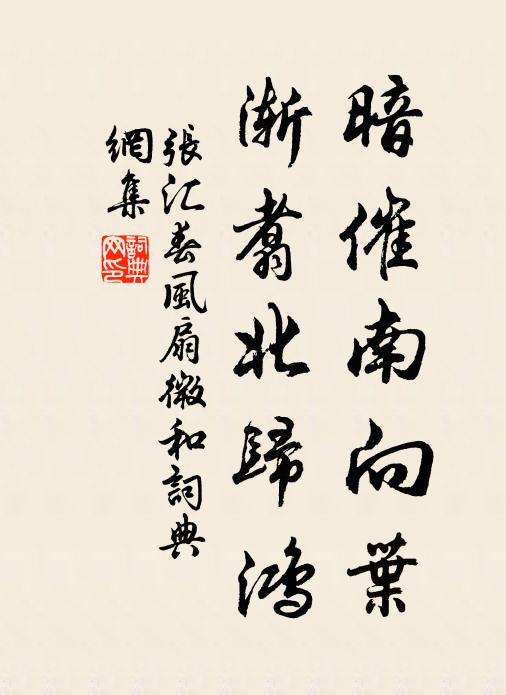 暗催南向葉
漸翥北歸鴻
張汇春風扇微和詞典
網集
詞典
网印